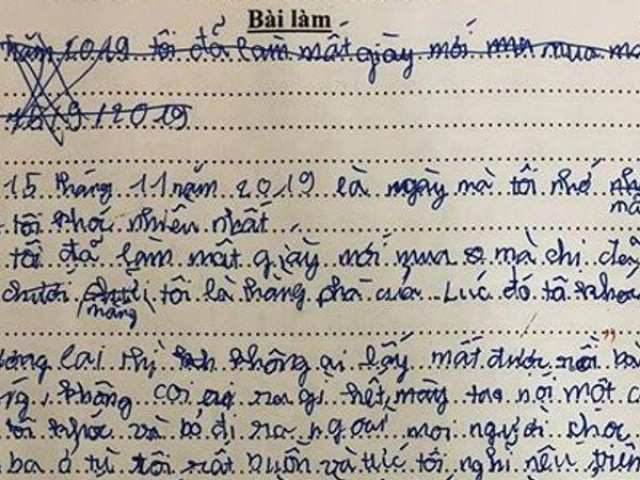 Bài làm
năm 2019 tôi đã làm mất giày mới mua
15/9/2019
15 tháng 11 năm 2019 là ngày mà tôi nhớ
tôi khóc nhiều nhất
tôi đã làm mất giày mới mua mà chỉ
chửi mắng tôi là thằng phá của. Lúc đó tô
lai thì không ai lấy mất được rồi
không coi ai ra gì hết, mày tao nói một
tôi khóc và bỏ đi ra ngoài mọi người
ba ở tù tôi rất buồn và tức tôi nghỉ nếu